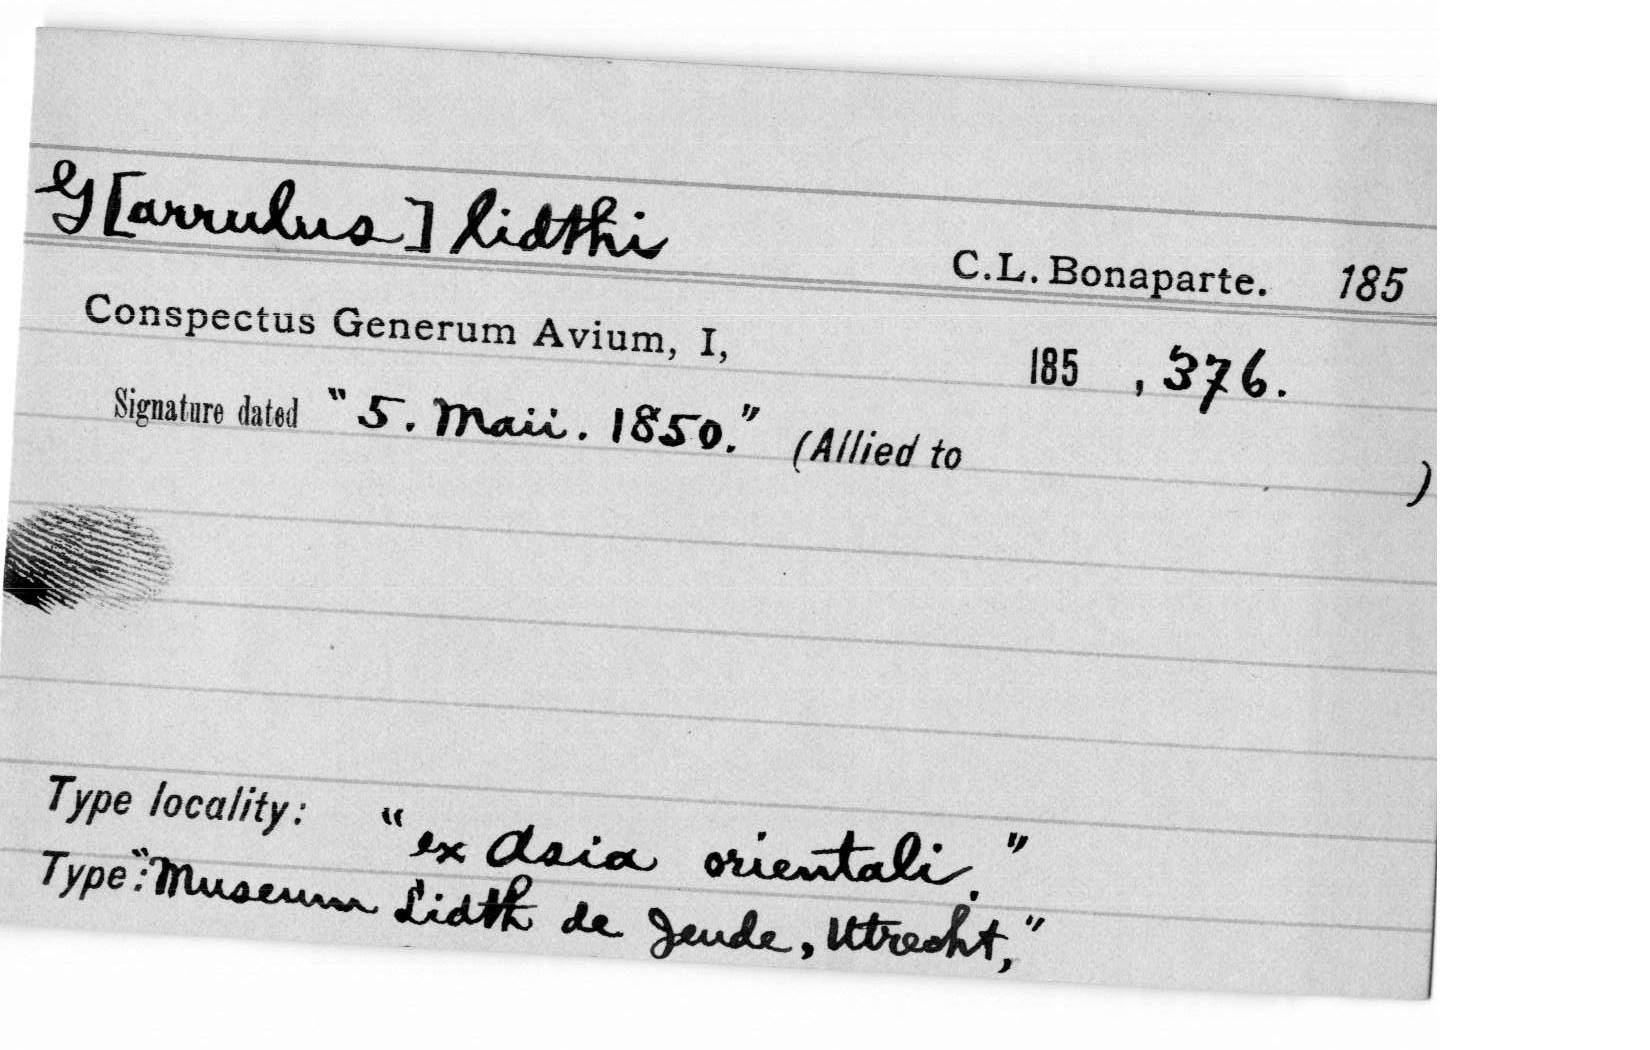 G[arrulus] lidthi C.L. Bonaparte. 185
Conspectus Generum Avium, I, 185 , 376.
Signature dated "5. Maii. 1850." (Allied to )
Type locality: "ex Asia orientali."
Type: "Museum Lidth de Jeude, Utrecht,"